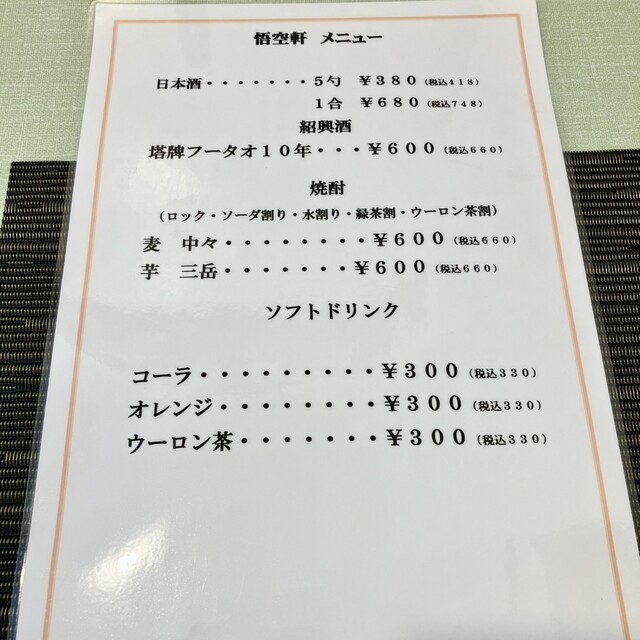 悟空軒　メニュー
日本酒・・・・・・・５勺　￥３８０（税込４１８）
１合　￥６８０（税込７４８）
紹興酒
塔牌フータオ１０年・・・￥６００（税込６６０）
焼酎
（ロック・ソーダ割り・水割り・緑茶割・ウーロン茶割）
麦　中々・・・・・・・・￥６００（税込６６０）
芋　三岳・・・・・・・￥６００（税込６６０）
ソフトドリンク
コーラ・・・・・・・・・￥３００（税込３３０）
オレンジ・・・・・・・・￥３００（税込３３０）
ウーロン茶・・・・・・・￥３００（税込３３０）